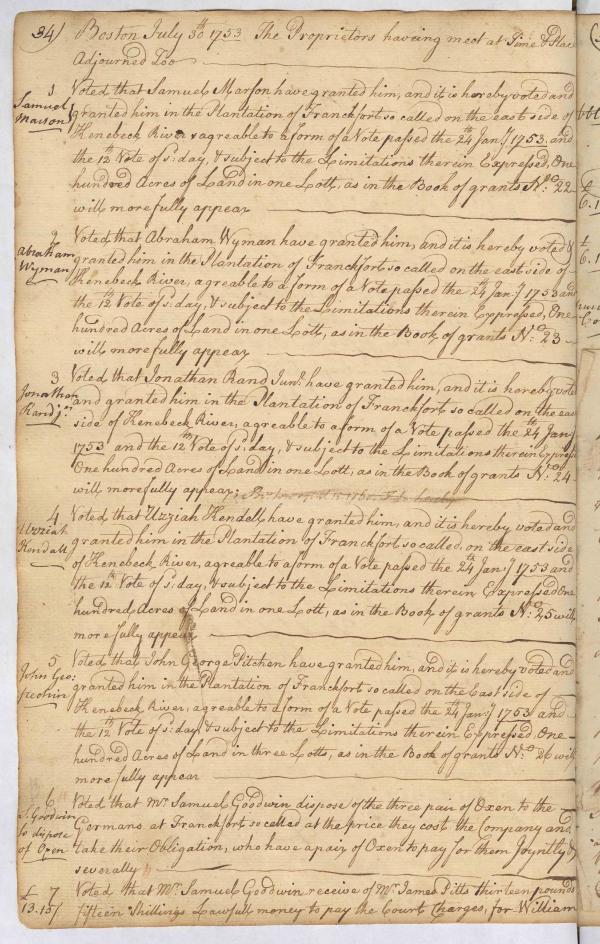 34)
Boston July 30th 1753 The Proprietors haveing meet at Time & Place
Adjourned Too
1
Samuel
Marson
Voted that Samuel Marson have granted him, and it is hereby voted and
granted him in the Plantation of Franckfort so called on the east side of
Kenebeck River & agreable to a form of a Vote passed the 24th Jany 1753, and
the 12th Vote of sd. day, & subject to the Limitations therein Expressed, One
hundred Acres of Land in one Lott, as in the Book of grants No. 22
will more fully appear
2
Abraham
Wyman
Voted that Abraham Wyman have granted him, and it is hereby voted &
granted him in the Plantation of Franckfort so called on the east side of
Kenebeck River, agreable to a form of a Vote passed the 24th Jany 1753 and
the 12th Vote of sd. day, & subject to the Limitations therein Expressed, One
hundred Acres of Land in one Lott, as in the Book of grants No. 23
will more fully appear
3
Jonathan
Rand jr.
Voted that Jonathan Rand Junr. have granted him, and it is hereby vote
and granted him in the Plantation of Franckfort so called on the eas
side of Kenebeck River, agreable to a form of a Vote passed the 24th Jany
1753 and the 12th Vote of sd. day, & subject to the Limitations therein Express
One hundred Acres of Land in one Lott, as in the Book of grants No. 24
will more fully appear;
4
Uzziah
Kendall
Voted that Uzziah Kendell have granted him, and it is hereby voted and
granted him in the Plantation of Franckfort so called, on the east side
of Kenebeck River, agreable to a form of a Vote passed the 24th Jany 1753 and
the 12th Vote of sd. day, & subject to the Limitations therein Expressed One
hundred Acres of Land in one Lott, as in the Book of grants No. 25 will
more fully appear
5
John Geo:
Voted that John George Pitchen have granted him, and it is hereby voted and
granted him in the Plantation of Franckfort so called on the East side of
Kenebeck River, agreable to a form of a Vote passed the 24th Jany 1753 and
the 12th Vote of sd. day & subject to the Limitations therein Expressed, One
hundred Acres of Land in three Lotts, as in the Book of grants No. 26 will
more fully appear
6
S. Goodwin
to dispose
of Oxen
Voted that Mr. Samuel Goodwin dispose of the three pair of Oxen to the
Germans at Franckfort so called at the price they cost the Company and
take their Obligation, who have a pair of Oxen to pay for them Joyntly &
severally
£ 7
13.15/
Voted that Mr. Samuel Goodwin receive of Mr. James Pitts thirteen pounds
fifteen Shillings Lawfull money to pay the Court Charges, for William